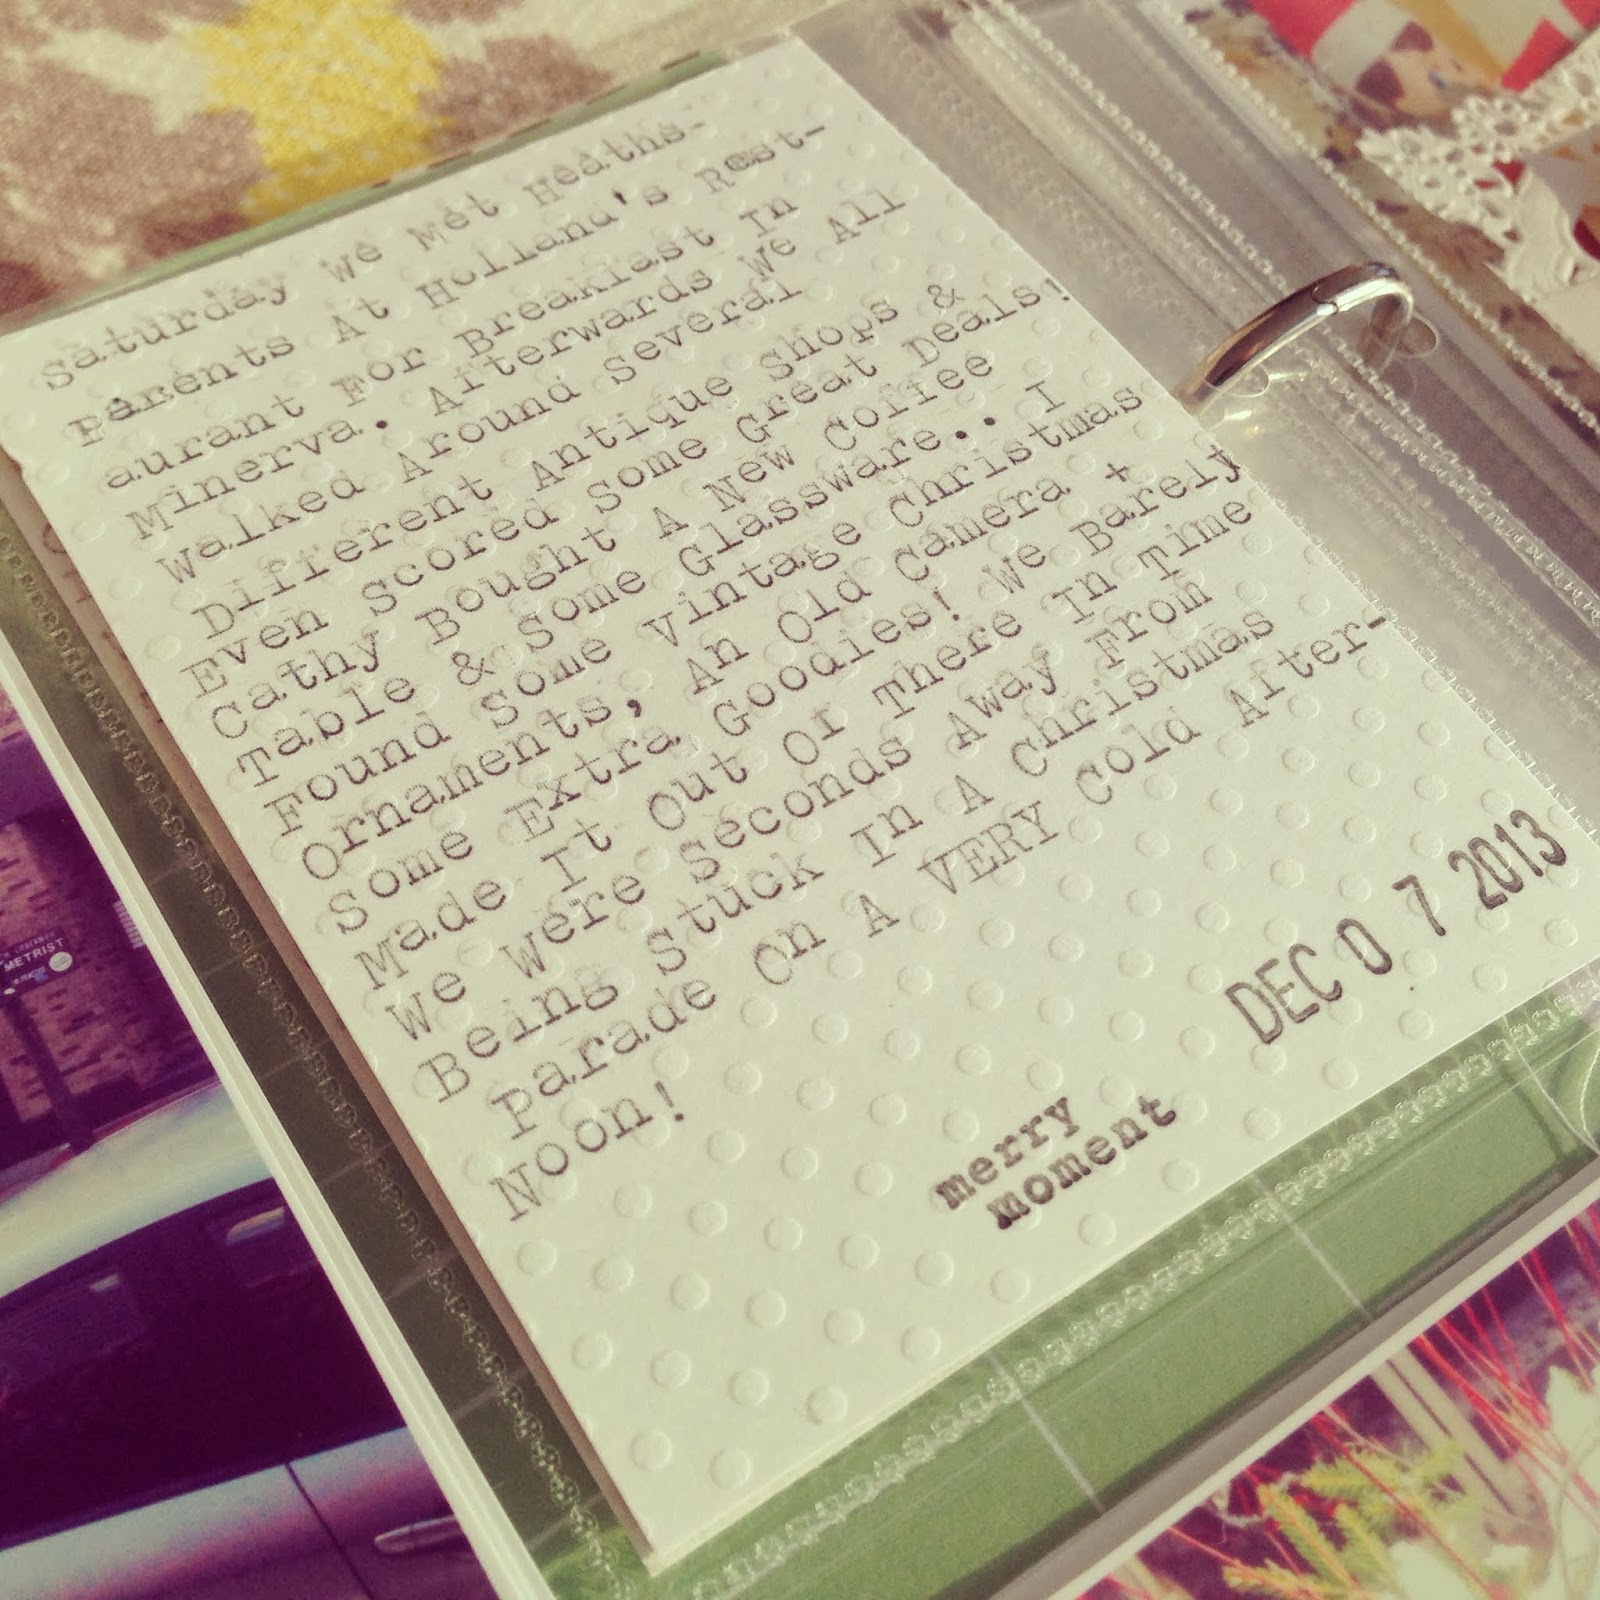 Saturday We Met Heaths-
Parents At Holland's Rest-
aurant For Breakfast In
Minerva. Afterwards We All
Walked Around Several
Different Antique Shops &
Even Scored Some Great Deals!
Cathy Bought A New Coffee
Table & Some Glassware.. I
Found Some Vintage Christmas
Ornaments, An Old Camera +
Some Extra Goodies! We Barely
Made It Out Of There In Time
We Were Seconds Away From
Being Stuck In A Christmas
Parade On A VERY Cold After-
Noon!
DEC 0 7 2013
merry
moment
METRIST